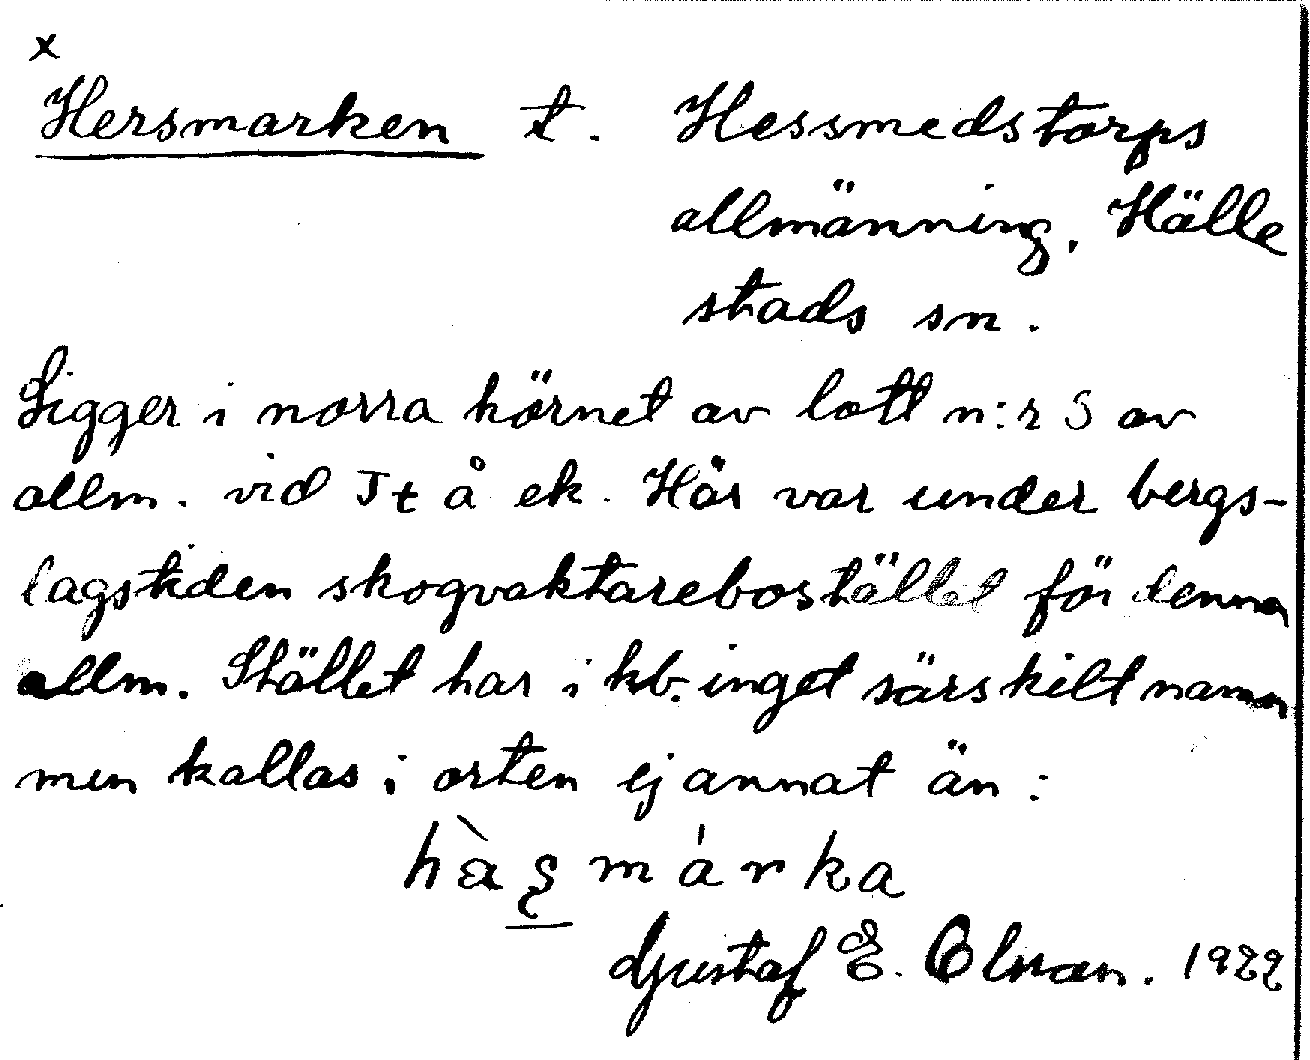 x
Hersmarken t. Hessmedstorps
allmänning, Hälle
stads sn.
Ligger i norra hörnet av lott n:r 3 av
allm. vid It å ek. Här var under bergs-
lagstiden skogvaktarebostället för denna
allm. Stället har i kb. inget särskilt namn
men kallas i orten ej annat än:
hàs̨márka
Gustaf E. Olman. 1922